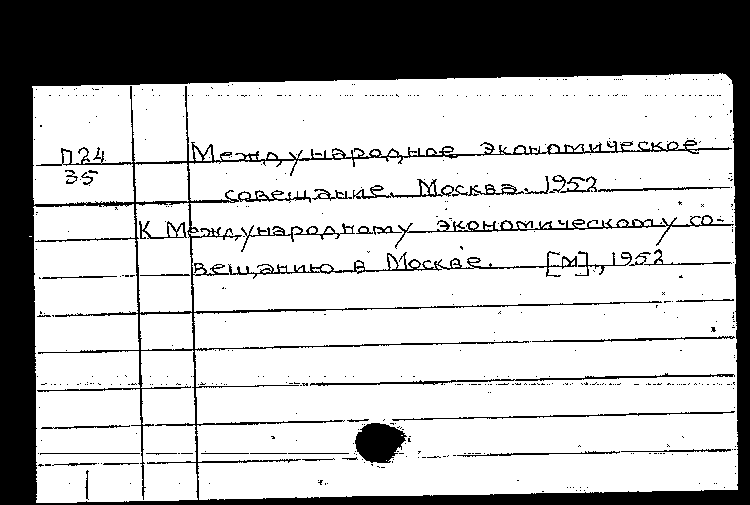 П24 Международное экономическое
35 совещание. Москва. 1952
К Международному экономическому со-
вещанию в Москве. [М]., 1952